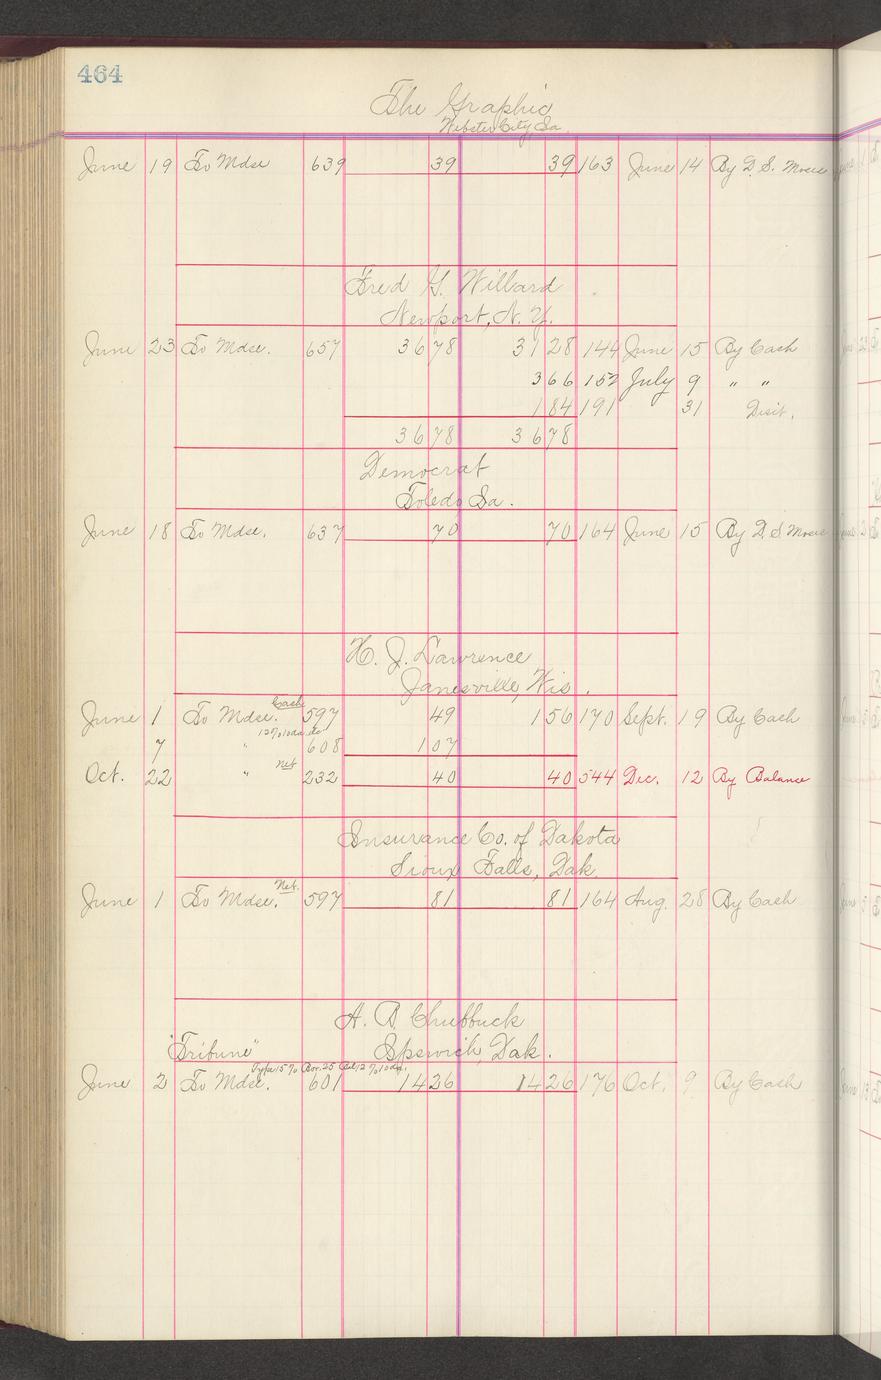 464
The Graphic
Webster City Ia.
June 19 To Mdse 639 39 39 163 June 14 By D. S. Morse
Fred G. Willard
Newport, N. Y.
June 23 To Mdse. 657 36 78 31 28 144 June 15 By Cash
3 66 152 July 9 " "
1 84 191 31 Disct.
36 78 36 78
Democrat
Toledo Ia.
June 18 To Mdse. 637 70 70 164 June 15 By D. S Morse
H. J. Lawrence
Janesville, Wis.
Cash
June 1 To Mdse. 597 49 1 56 170 Sept. 19 By Cash
12% 10 da. do
7 " 608 1 07
net
Oct. 22 " 232 40 40 544 Dec. 12 By Balance
Insurance Co. of Dakota
Sioux Falls, Dak.
Net.
June 1 To Mdse. 597 81 81 164 Aug. 28 By Cash
A. B. Chubbuck
"Tribune" Ipswich, Dak.
Type 15% Bor. 25 12% 10 da.
June 2 To Mdse. 601 14 26 14 26 176 Oct. 9 By Cash